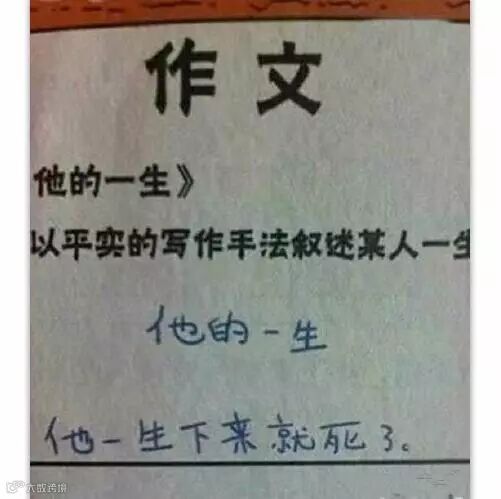 作文
他的一生》
以平实的写作手法叙述某人一生
他的一生
他一生下来就死了。
大数跨境